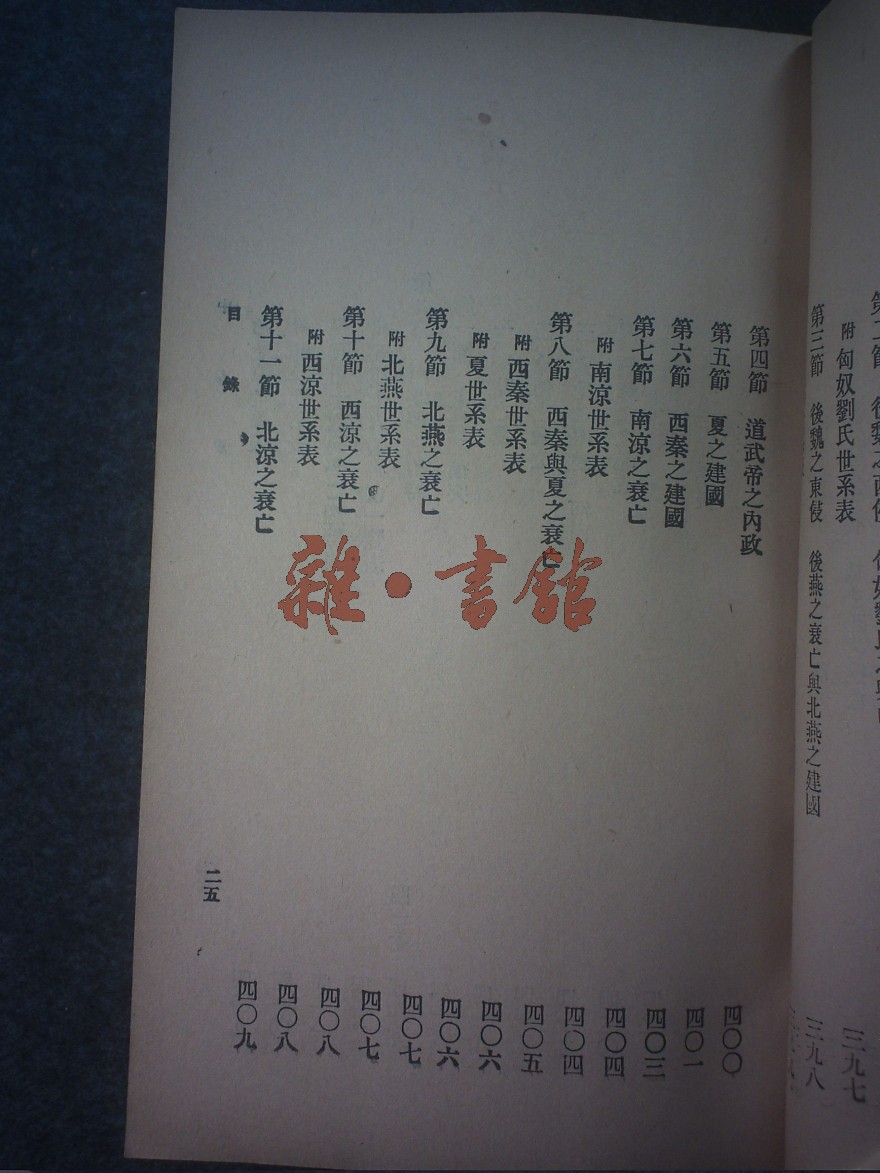 附 匈奴劉氏世系表 三九八
第三節 後魏之東侵 後燕之衰亡與北燕之建國
第四節 道武帝之內政 四〇〇
第五節 夏之建國 四〇一
第六節 西秦之建國 四〇三
第七節 南涼之衰亡 四〇四
附 南涼世系表 四〇四
第八節 西秦與夏之衰亡 四〇五
附 西秦世系表 四〇六
附 夏世系表 四〇六
第九節 北燕之衰亡 四〇七
附 北燕世系表 四〇七
第十節 西涼之衰亡 四〇八
附 西涼世系表 四〇八
第十一節 北涼之衰亡 四〇九
目錄 二五
雜·書館